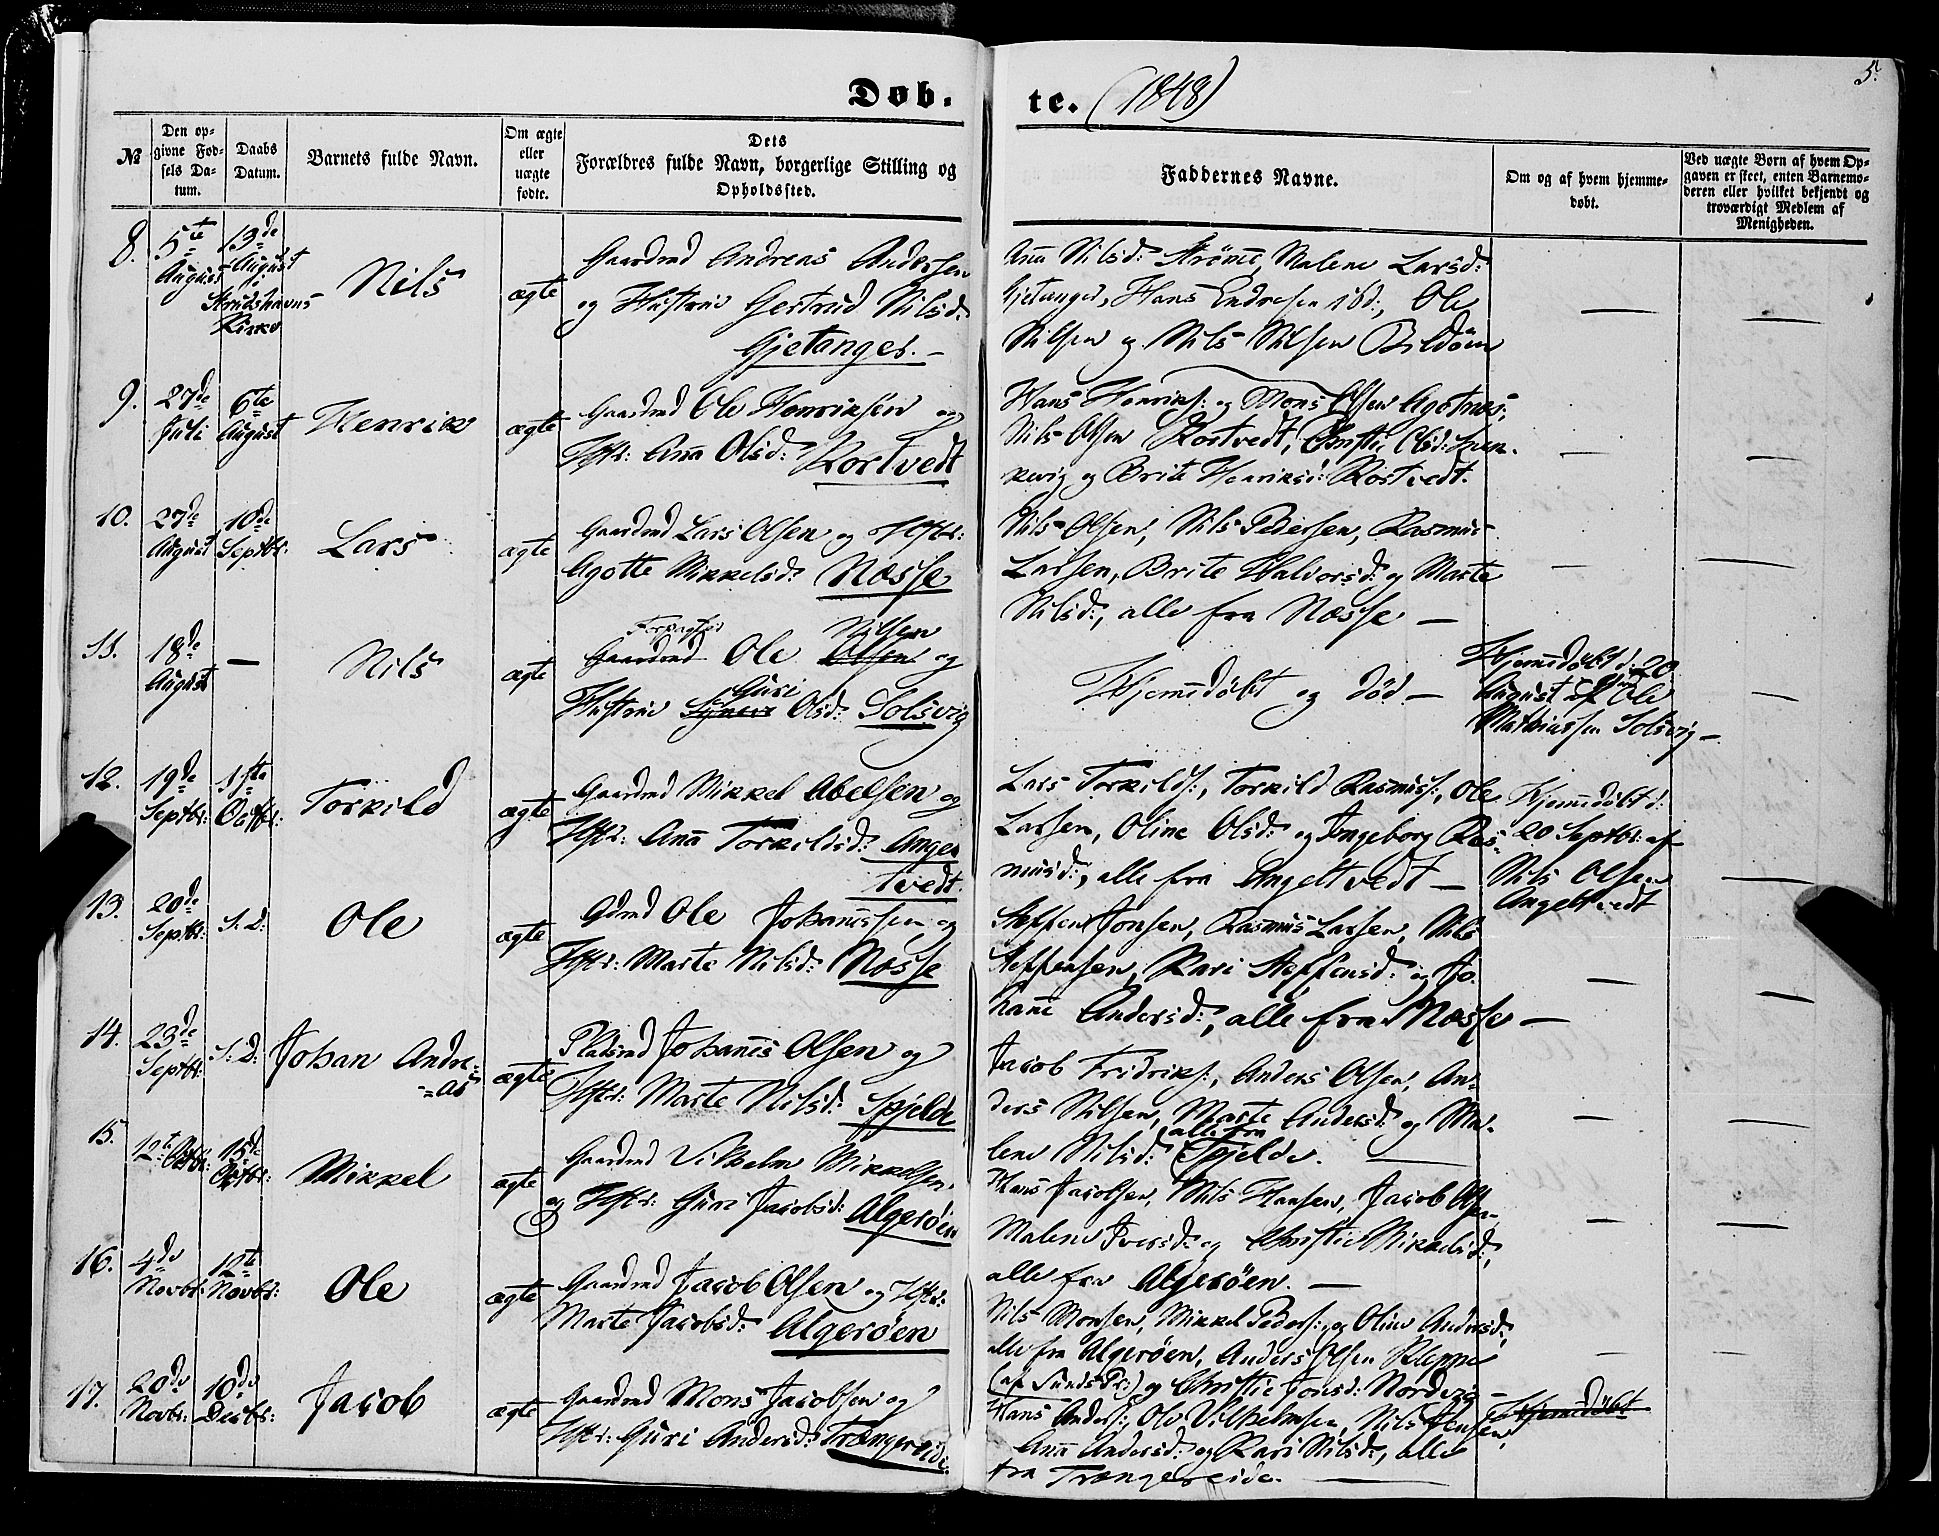 Døb. te. (1848)
5.
№
Den opgivne Fødsels Datum.
Daabs Datum.
Barnets fulde Navn.
Om ægte eller uægte fødte.
Dets Forældres fulde Navn, borgerlige Stilling og Opholdssted.
Faddernes Navne.
Om og af hvem hjemmedøbt.
Ved uægte Børn af hvem Opgaven er skeet, enten Barnemoderen eller hvilket bekjendt og troværdigt Medlem af Menigheden.
8.
5te August
13de August i
Kirke
Nils
ægte
Gaardmd Andreas Andersen
og Hustrue Gertrud Nilsd:
Gjetanger. —
Anna Nilsd: Strømme, Malene Larsd:
Gjetanger, Hans Endresen ibd:, Ole
Nilsen og Nils Nilsen Bildøen
— —
9.
27de Juli
6te August
Henrik
ægte
Gaardmd Ole Henriksen og
Hstr: Anna Olsd: Kortvedt
Hans Henriks: og Mons Olsen Agotnes,
Nils Olsen Kortvedt, Christi Olsd:
og Brite Henriksd: Kortvedt.
— —
10.
27de August
10de Septbr:
Lars
ægte
Gaardmd Lars Olsen og Hstr:
Agotte Mikkelsd: Næsse
Nils Olsen, Nils Pedersen, Rasmus
Larsen, Brite Halvorsd: og Marte
Nilsd:, alle fra Næsse —
— —
11.
18de August
—
Nils
ægte
Forpagter Nilsen
Gaardmd Ole Olsen og
Guri
Hustrue Olsd: Solsvig
Hjemmedøbt og død —
Hjemmedøbt d. 20
August af Ole
Mathiassen Solsvig —
—
12.
19de Septbr:
1ste Octbr:
Torkild
ægte
Gaardmd Mikkel Abelsen og
Hstr: Anna Torkildsd: Angel
tvedt.
Lars Torkilds:, Torkild Rasmuss:, Ole
Larsen, Oline Olsd: og Ingeborg Ras-
musd:, alle fra Angeltvedt —
Hjemmedøbt d:
20 Septbr: af
Nils Olsen
Angeltvedt
—
13.
20de Septbr:
S. D:
Ole
ægte
Gdmd Ole Johannessen og
Hstr: Marte Nilsd: Næsse
Steffen Jonsen, Rasmus Larsen, Nils
Steffensen, Kari Steffensd: og Jo-
hanne Andersd:, alle fra Næsse —
— —
14.
23de Septbr:
S. D:
Johan Andre-
=as
ægte
Pladsmd Johannes Olsen og
Hstr: Marte Nilsd: Spjelde
Jacob Fridriks:, Anders Olsen, An-
ders Nilsen, Marte Andersd: og Ma-
alle fra
lene Nilsd: Spjelde. —
— —
15.
12te Octbr:
15de Octbr:
Mikkel
ægte
Gaardmd Vilhelm Mikkelsen
og Hstr: Guri Jacobsd: Algerøen
Hans Jacobsen, Nils Hansen, Jacob Olsen
Malene Iversd: og Christie Mikkelsd:
alle fra Algerøen. —
— —
16.
4de Novbr:
12te Novbr:
Ole
ægte
Gaardmd Jacob Olsen og Hstr:
Marte Jacobsd: Algerøen
Nils Monsen, Mikkel Peders: og Oline Andersd:
alle fra Algerøen, Anders Olsen Kleppe
(af Sunds Pr:) og Christie Jonsd: Nordvig —
— —
17.
20de Novbr:
10de Decbr:
Jacob
ægte
Gaardmd Mons Jacobsen og
Hstr: Guri Andersd: Trængereide.
Hans Anders:, Ole Vilhelmsen, Nils Jensen,
Anna Andersd: og Kari Nilsd:, alle
fra Trængereide. —
Hjemmedøbt